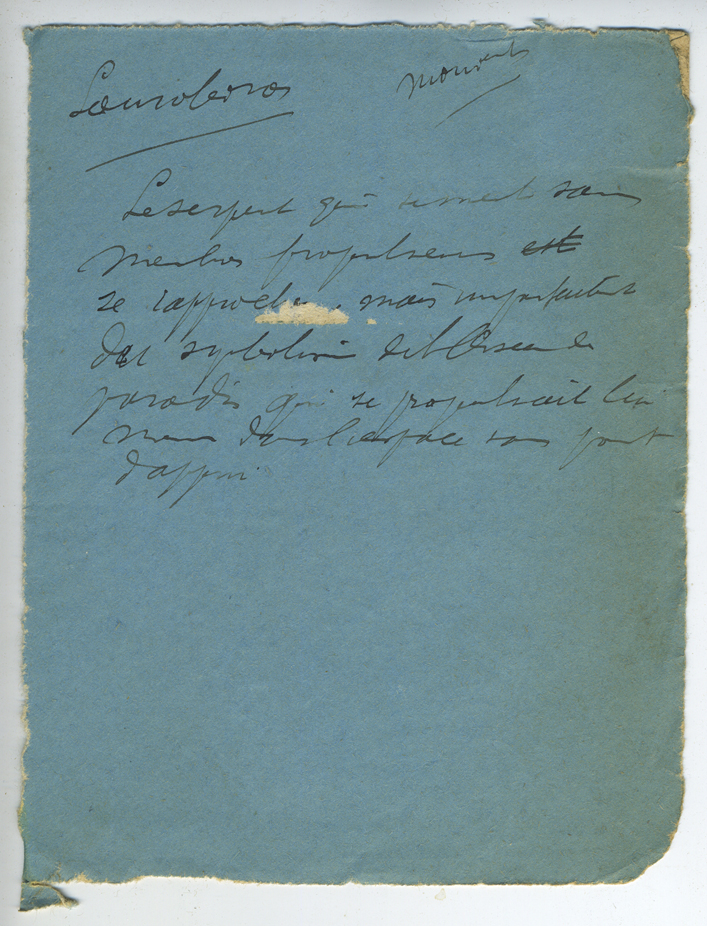 L'ouroboros mouvent
Le serpent qui se meut sans
membres propulseurs est
se rapproche mais imparfaitent
du symbolisme de l'oiseau de
paradis qui se propulsait lui
meme dans l'espace sans point
d'appui